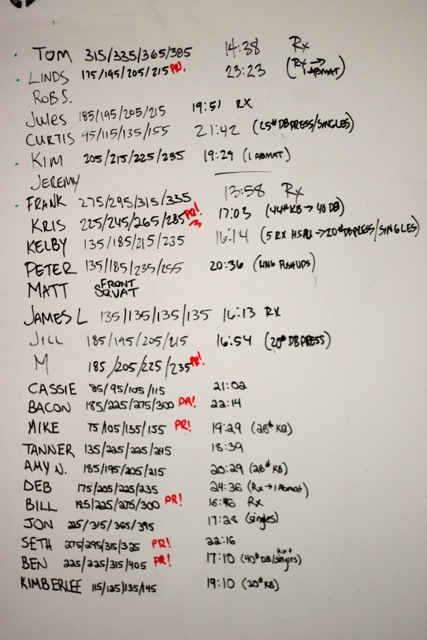 TOM 315/335/365/385 14:38 Rx
LINDS 175/195/205/215 PR! 23:23 (Rx → 1 ABMAT)
ROB S.
Jules 185/195/205/215 19:51 RX
CURTIS 95/115/135/155 21:42 (25# DB PRESS/SINGLES)
KIM 205/215/225/235 19:29 (1 ABMAT)
JEREMY
FRANK 275/295/315/335 13:58 Rx
KRIS 225/245/265/285 PR! 17:03 (44# KB → 40 DB)
KELBY 135/185/215/235 16:14 (5 RX HSPU → 20# DB PRESS/SINGLES)
PETER 135/185/235/255 20:36
MATT FRONT SQUAT
JAMES L 135/135/135/135 16:13 RX
JILL 185/195/205/215 16:54 (20# DB PRESS)
M 185/205/225/235 PR!
CASSIE 85/95/105/115 21:02
BACON 185/225/275/300 PR! 22:14
MIKE 75/105/135/155 PR! 19:29 (28# KB)
TANNER 135/225/225/245 18:39
AMY N. 185/195/205/215 20:29 (28# KB)
DEB 175/205/225/235 24:36 (Rx → 1 Abmat)
BILL 185/225/275/300 PR! Rx
JON 225/315/365/395 17:28 (singles)
SETH 275/295/315/325 PR! 22:16
BEN 225/225/315/405 PR! 17:10 (40# DB/singles)
KIMBERLEE 115/125/135/145 19:10 (20# KB)